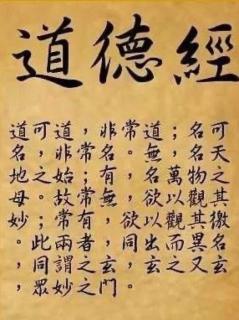 道德經
道可道,非常道;名可
名,非常名。無,名天
地之始;有,名萬物之
母。故常無,欲以觀其
妙;常有,欲以觀其徼
。此兩者,同出而異名
,同謂之玄。玄之又玄
,眾妙之門。